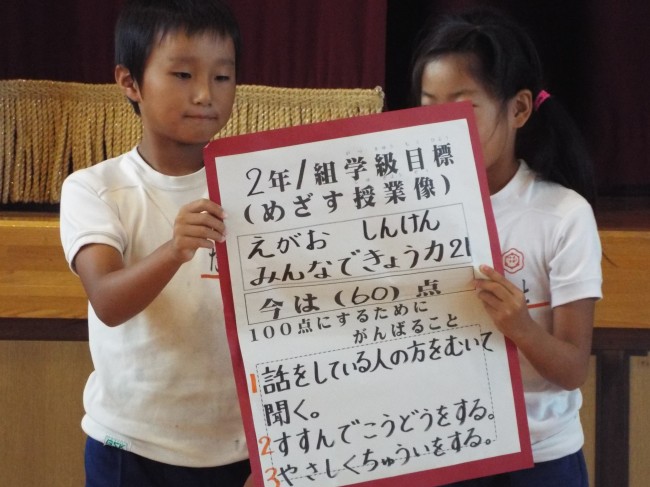 2年1組学級目標
(めざす授業像)
えがお しんけん
みんなできょう力21
今は(60)点
100点にするために
がんばること
1 話をしている人の方をむいて
聞く。
2 すすんでこうどうをする。
3 やさしくちゅういをする。